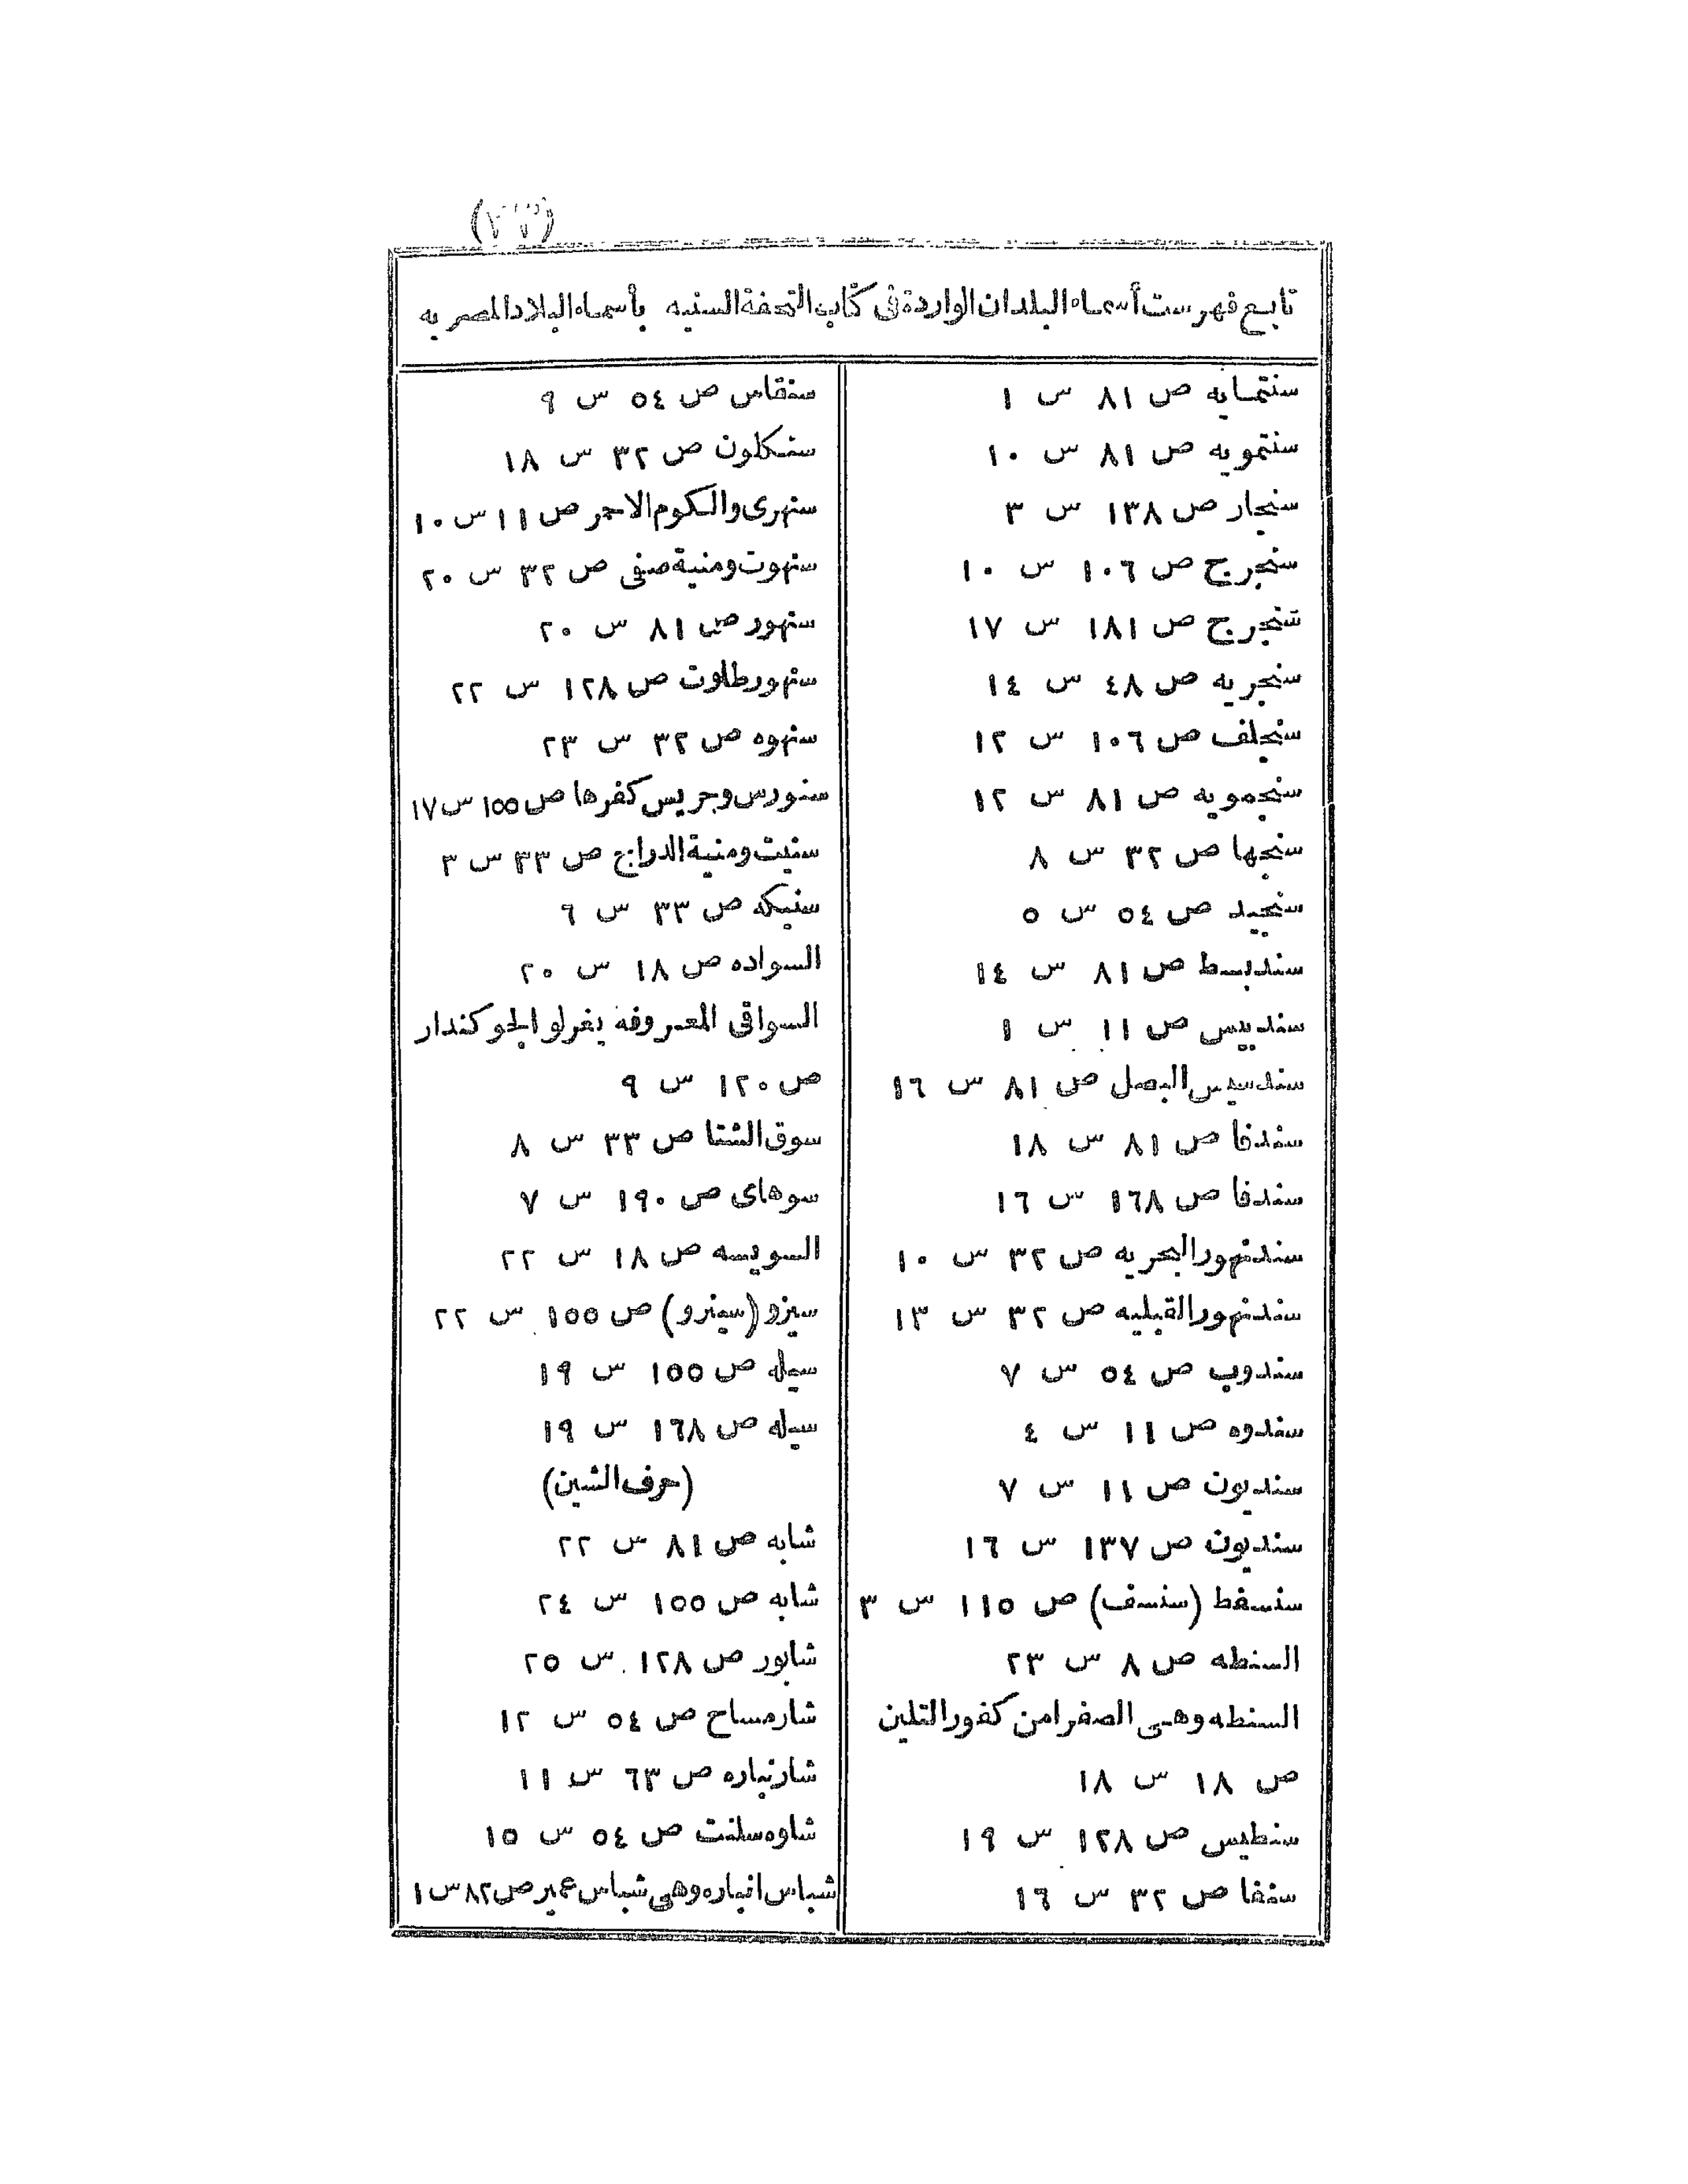 تابع فهرست أسماء البلدان الواردة في كتاب التحفة السنيه بأسماء البلاد المصريه
سنتمايه ص ٨١ س ١
سنتمويه ص ٨١ س ١٠
سنجار ص ١٣٨ س ٣
سنجرج ص ١٠٦ س ١٠
سنجرج ص ١٨١ س ١٧
سنجريه ص ٤٨ س ١٤
سنجلف ص ١٠٦ س ١٢
سنجمويه ص ٨١ س ١٢
سنجها ص ٣٢ س ٨
سنجيد ص ٥٤ س ٥
سندبسط ص ٨١ س ١٤
سندبيس ص ١١ س ١
سندسيس البصل ص ٨١ س ١٦
سندفا ص ٨١ س ١٨
سندفا ص ١٦٨ س ١٦
سندنهور البحريه ص ٣٢ س ١٠
سندنهور القبليه ص ٣٢ س ١٣
سندوب ص ٥٤ س ٧
سندوه ص ١١ س ٤
سنديون ص ١١ س ٧
سنديون ص ١٣٧ س ١٦
سنسفط (سنسف) ص ١١٥ س ٣
السنطه ص ٨ س ٢٣
السنطه وهى الصفرا من كفور التلين
ص ١٨ س ١٨
سنطيس ص ١٢٨ س ١٩
سنفا ص ٣٢ س ١٦
سنقاس ص ٥٤ س ٩
سنكلون ص ٣٢ س ١٨
سنهرى والكوم الاحمر ص ١١ س ١٠
سنهوت ومنية صفى ص ٣٢ س ٢٠
سنهور ص ٨١ س ٢٠
سنهور طلوت ص ١٢٨ س ٢٢
سنهوه ص ٣٢ س ٢٣
سنورس وجريس كفرها ص ١٥٥ س ١٧
سنيت ومنية الدراج ص ٣٣ س ٣
سنيكه ص ٣٣ س ٦
السواده ص ١٨ س ٢٠
السواقى المعروفه بغرلو الجوكندار
ص ١٢٠ س ٩
سوق الشتا ص ٣٣ س ٨
سوهاى ص ١٩٠ س ٧
السويسه ص ١٨ س ٢٢
سيزو (سينرو) ص ١٥٥ س ٢٢
سيله ص ١٥٥ س ١٩
سيله ص ١٦٨ س ١٩
(حرف الشين)
شابه ص ٨١ س ٢٢
شابه ص ١٥٥ س ٢٤
شابور ص ١٢٨ س ٢٥
شارمساح ص ٥٤ س ١٢
شارنباره ص ٦٣ س ١١
شاوه سلنت ص ٥٤ س ١٥
شباس انباره وهى شباس عمير ص ٨٢ س ١